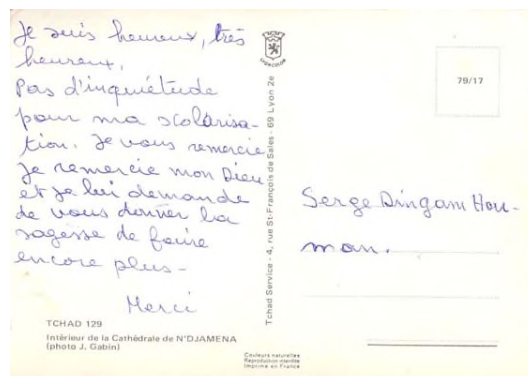 Je suis heureux, très
heureux.
Pas d'inquiétude
pour ma scolarisa-
tion. Je vous remercie
Je remercie mon Dieu
et je lui demande
de vous donner la
sagesse de faire
encore plus -
Merci
TCHAD 129
Intérieur de la Cathédrale de N'DJAMENA
(photo J. Gabin)
Tchad Service - 4, rue St-François de Sales - 69 Lyon 2e
Couleurs naturelles
Reproduction interdite
Imprimé en France
79/17
Serge Dingam Hou-
man.